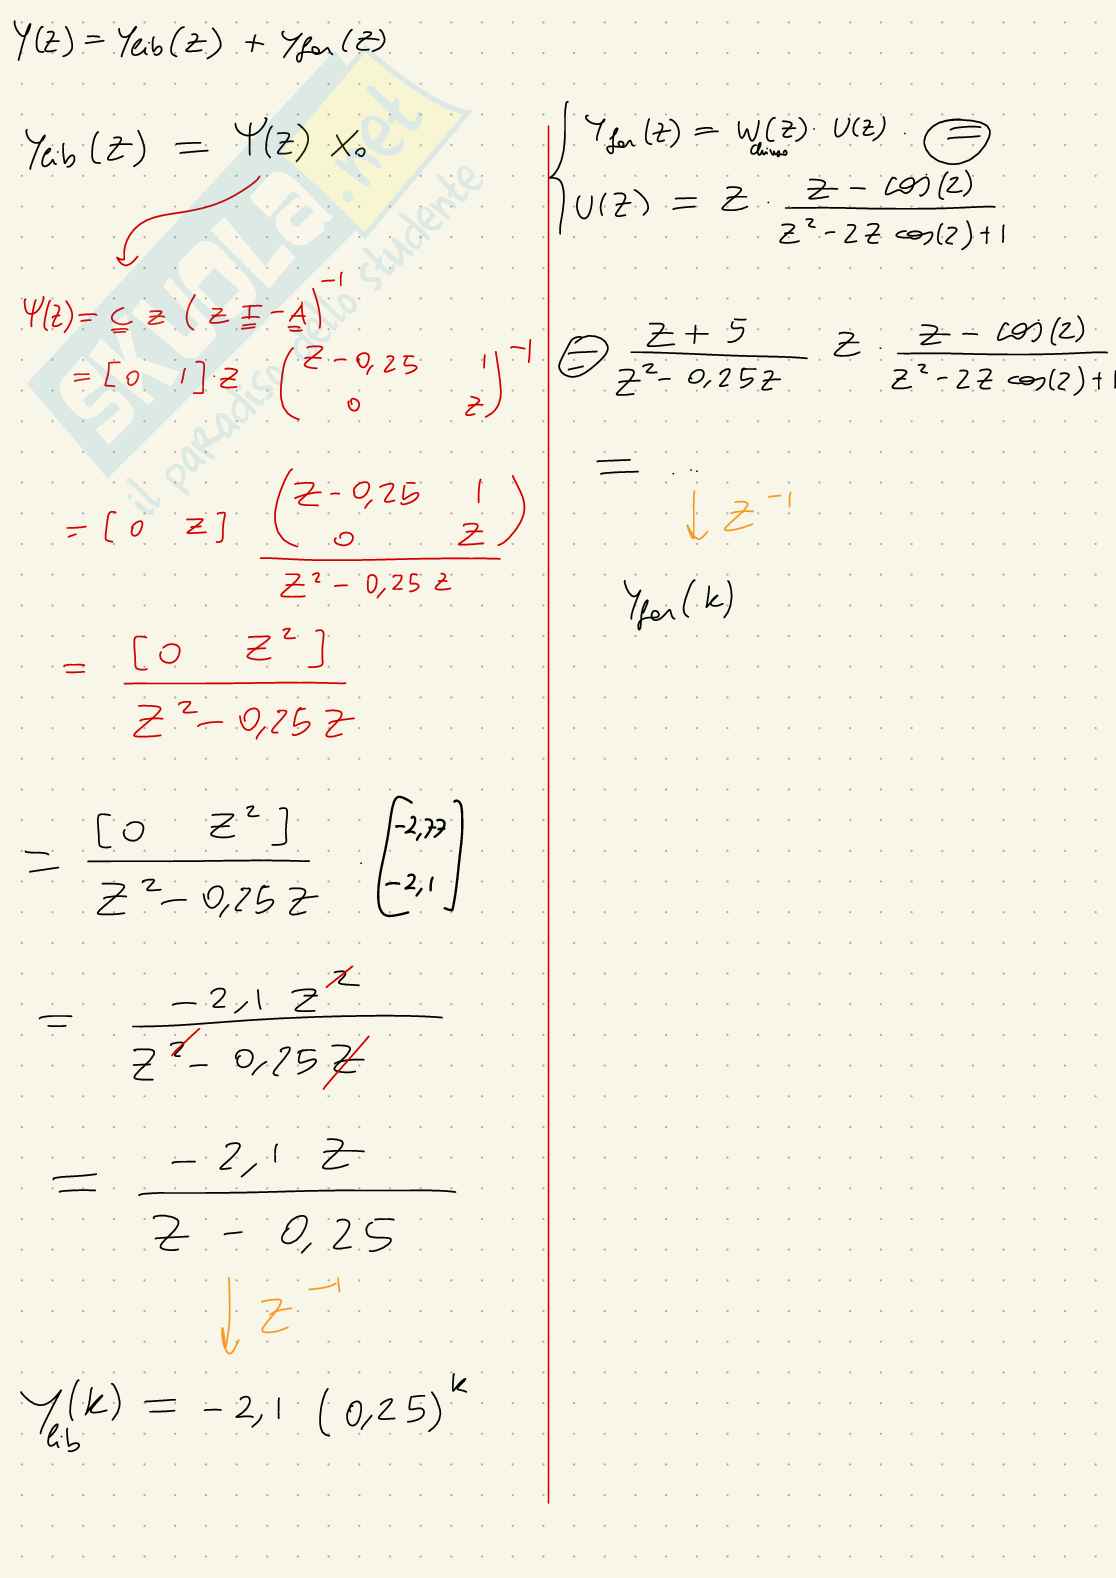 Y(z) = Ylib(z) + Yfor(z)
Ylib(z) = Ψ(z) X₀
Ψ(z) = C z (z I - A)⁻¹
= [0 1]·z (z - 0,25 1
0 z)⁻¹
= [0 z] (z - 0,25 1
0 z)
z² - 0,25 z
= [0 z²]
z² - 0,25 z
= [0 z²]
z² - 0,25 z
· [-2,77
-2,1]
= -2,1 z²
z² - 0,25 z
= -2,1 z
z - 0,25
↓ z⁻¹
Ylib(k) = -2,1 (0,25)ᵏ
Yfor(z) = W(z)· U(z) · =
chiuso
U(z) = z · z - cos(2)
z² - 2z cos(2) + 1
= z + 5
z² - 0,25z
z · z - cos(2)
z² - 2z cos(2) + 1
= ...
↓ z⁻¹
Yfor(k)
SKUOLA.net
il paradiso dello studente